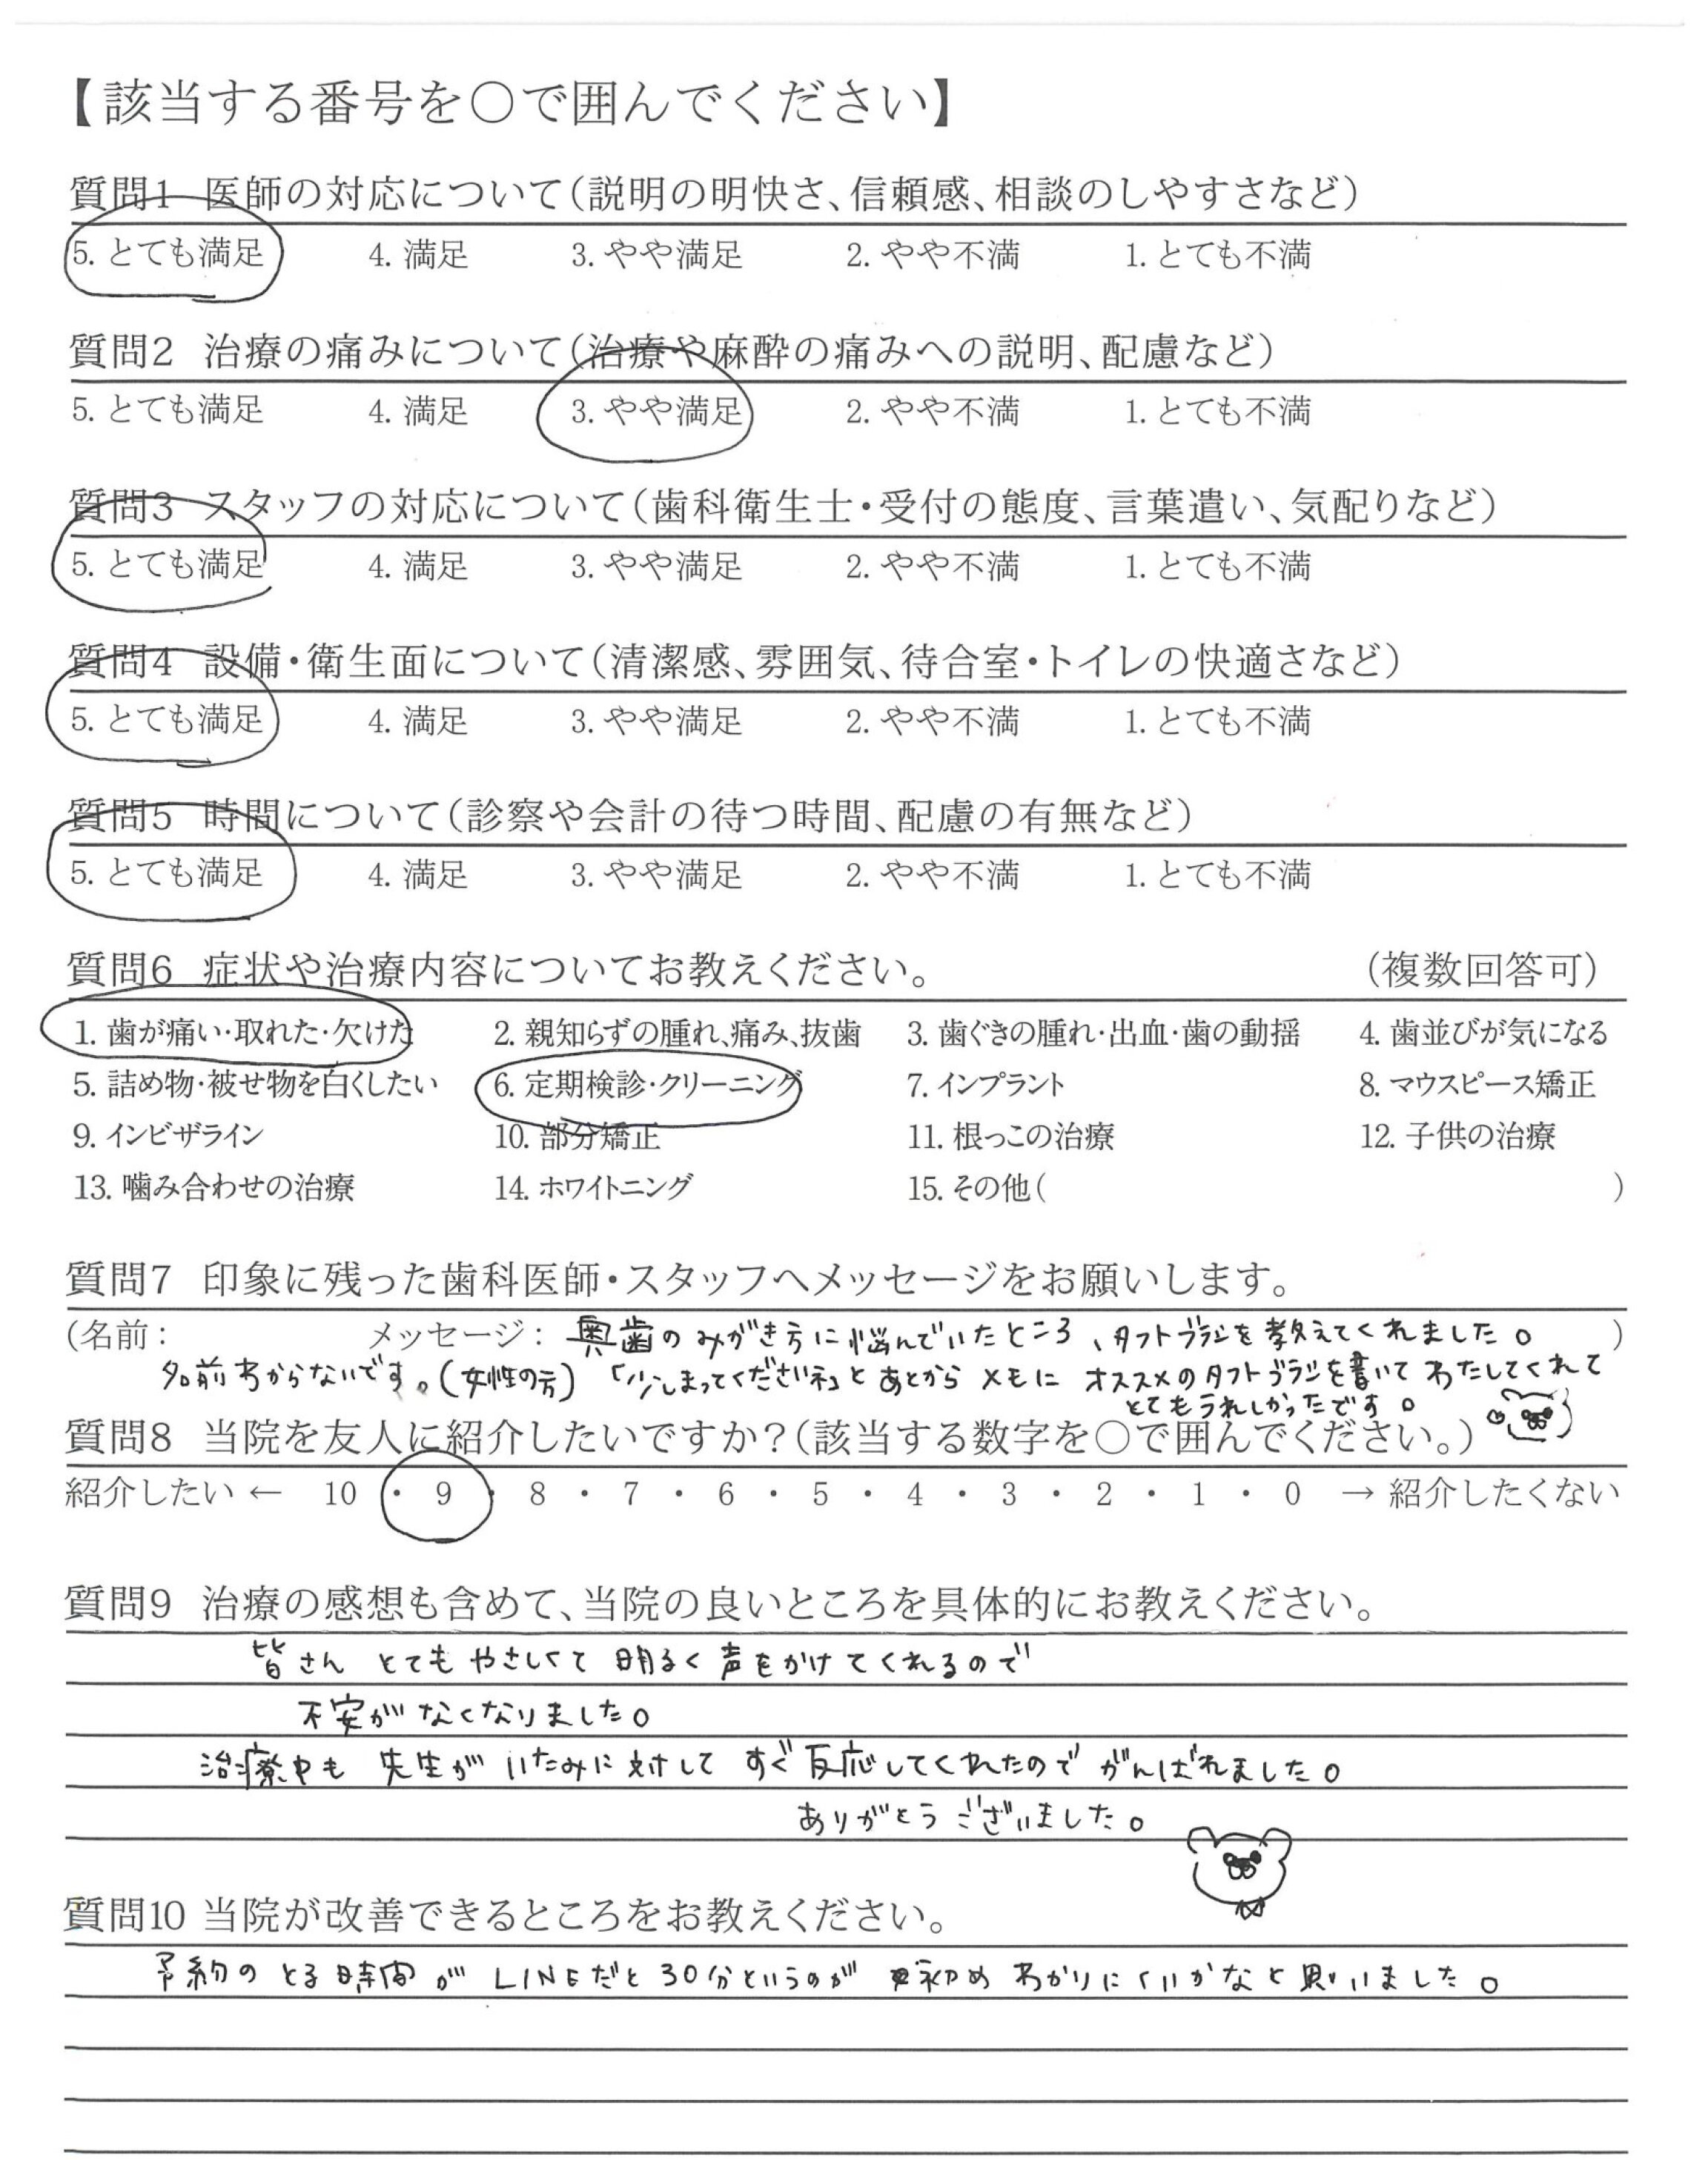 【該当する番号を〇で囲んでください】
質問1 医師の対応について(説明の明快さ、信頼感、相談のしやすさなど)
5. とても満足 4. 満足 3. やや満足 2. やや不満 1. とても不満
質問2 治療の痛みについて(治療や麻酔の痛みへの説明、配慮など)
5. とても満足 4. 満足 3. やや満足 2. やや不満 1. とても不満
質問3 スタッフの対応について(歯科衛生士・受付の態度、言葉遣い、気配りなど)
5. とても満足 4. 満足 3. やや満足 2. やや不満 1. とても不満
質問4 設備・衛生面について(清潔感、雰囲気、待合室・トイレの快適さなど)
5. とても満足 4. 満足 3. やや満足 2. やや不満 1. とても不満
質問5 時間について(診察や会計の待つ時間、配慮の有無など)
5. とても満足 4. 満足 3. やや満足 2. やや不満 1. とても不満
質問6 症状や治療内容についてお教えください。 (複数回答可)
1. 歯が痛い・取れた・欠けた 2. 親知らずの腫れ、痛み、抜歯 3. 歯ぐきの腫れ・出血・歯の動揺 4. 歯並びが気になる
5. 詰め物・被せ物を白くしたい 6. 定期検診・クリーニング 7. インプラント 8. マウスピース矯正
9. インビザライン 10. 部分矯正 11. 根っこの治療 12. 子供の治療
13. 噛み合わせの治療 14. ホワイトニング 15. その他( )
質問7 印象に残った歯科医師・スタッフへメッセージをお願いします。
(名前: メッセージ: 奥歯のみがき方に悩んでいたところ、タフトブラシを教えてくれました。 )
名前わからないです。(女性の方) 「少しまってくださいネ」とあとからメモに オススメのタフトブラシを書いて わたしてくれて
とてもうれしかったです。
質問8 当院を友人に紹介したいですか?(該当する数字を〇で囲んでください。)
紹介したい ← 10 ・ 9 ・ 8 ・ 7 ・ 6 ・ 5 ・ 4 ・ 3 ・ 2 ・ 1 ・ 0 → 紹介したくない
質問9 治療の感想も含めて、当院の良いところを具体的にお教えください。
皆さん とても やさしくて 明るく声をかけてくれるので
不安がなくなりました。
治療中も 先生が いたみに対して すぐ反応してくれたので がんばれました。
ありがとうございました。
質問10 当院が改善できるところをお教えください。
予約のとる時間が LINEだと30分というのが 初め わかりにくいかなと思いました。